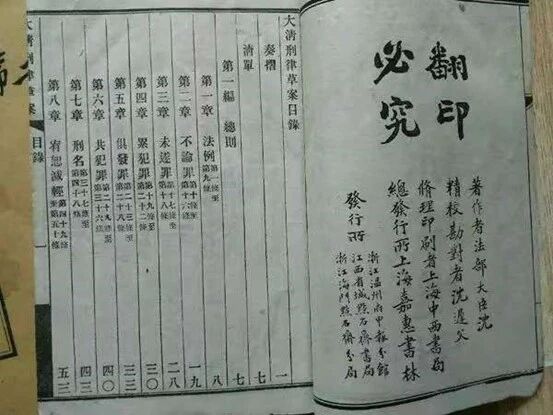 翻印
必究
著作者法部大臣沈
精校勘對者沈遲父
修理印刷者上海中西書局
總發行所上海嘉惠書林
發行所
浙江温州府甲報分館
江西省城點石齋書局
浙江海門點石齋分局
大清刑律草案目錄
奏摺 一
清單 七
第一編 總則 七
第一章 法例 第一條至第九條 七
第二章 不論罪 第十條至第十六條 一九
第三章 未遂罪 第十七條至第十八條 二八
第四章 累犯罪 第十九條至第二十二條 三〇
第五章 俱發罪 第二十三條至第二十八條 三三
第六章 共犯罪 第二十九條至第三十六條 四〇
第七章 刑名 第三十七條至第四十八條 四三
第八章 宥恕減輕 第四十九條至第五十條 五三
大清刑律草案
目錄
一